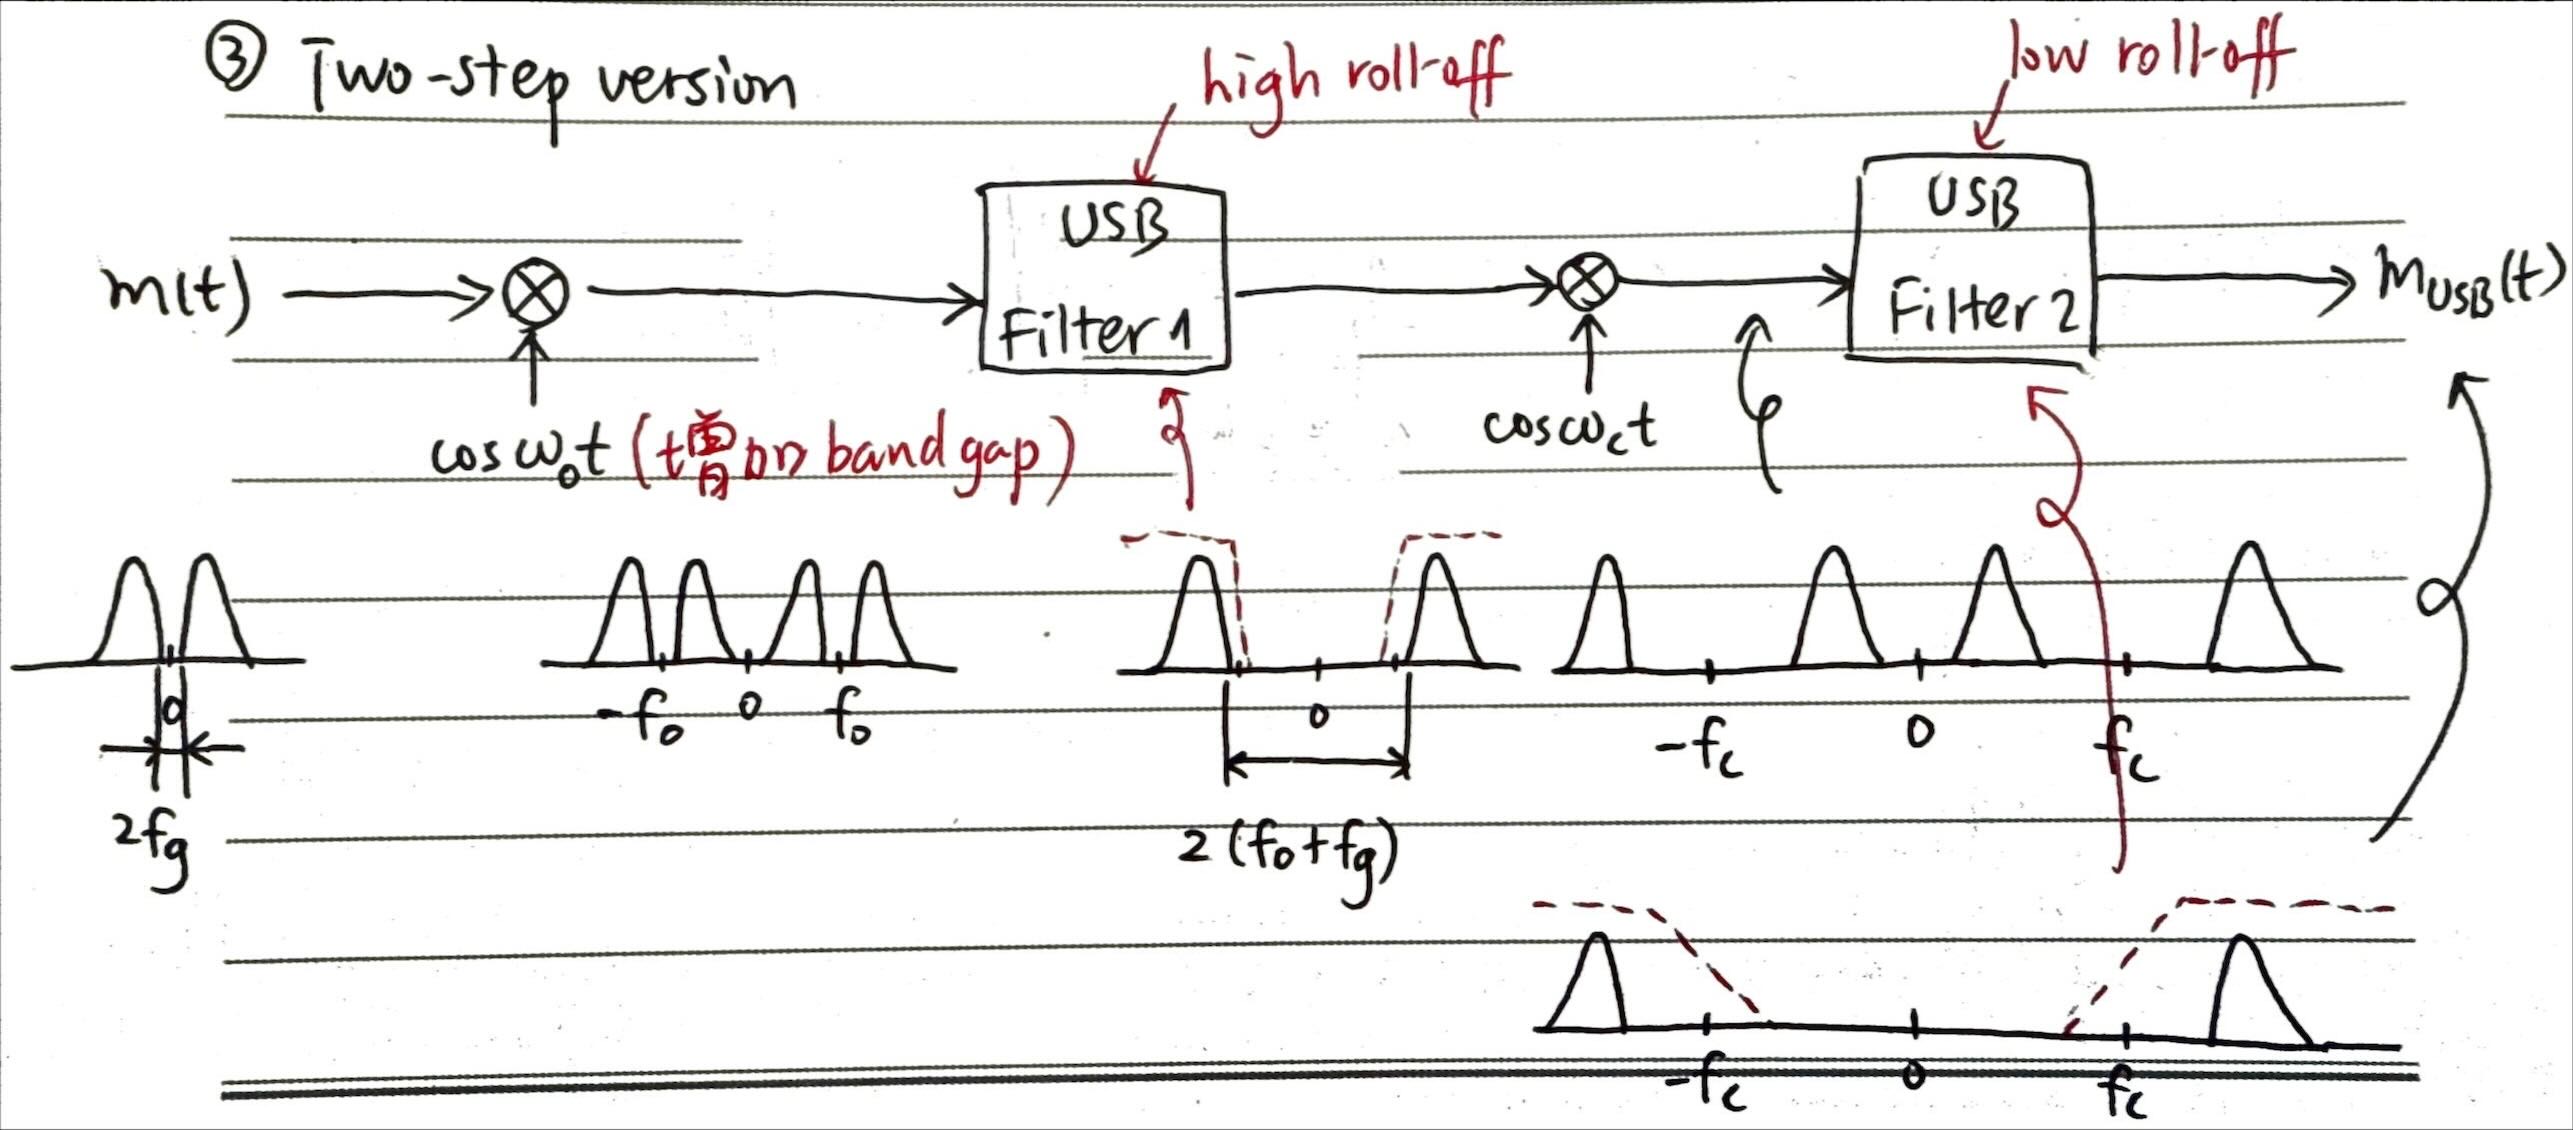 ③ Two-step version
high roll-off
low roll-off
m(t)
USB
Filter 1
USB
Filter 2
m_USB(t)
cos ω₀t (增加 band gap)
cos ω_c t
0
2f_g
-f₀ 0 f₀
0
2(f₀+f_g)
-f_c 0 f_c
-f_c 0 f_c